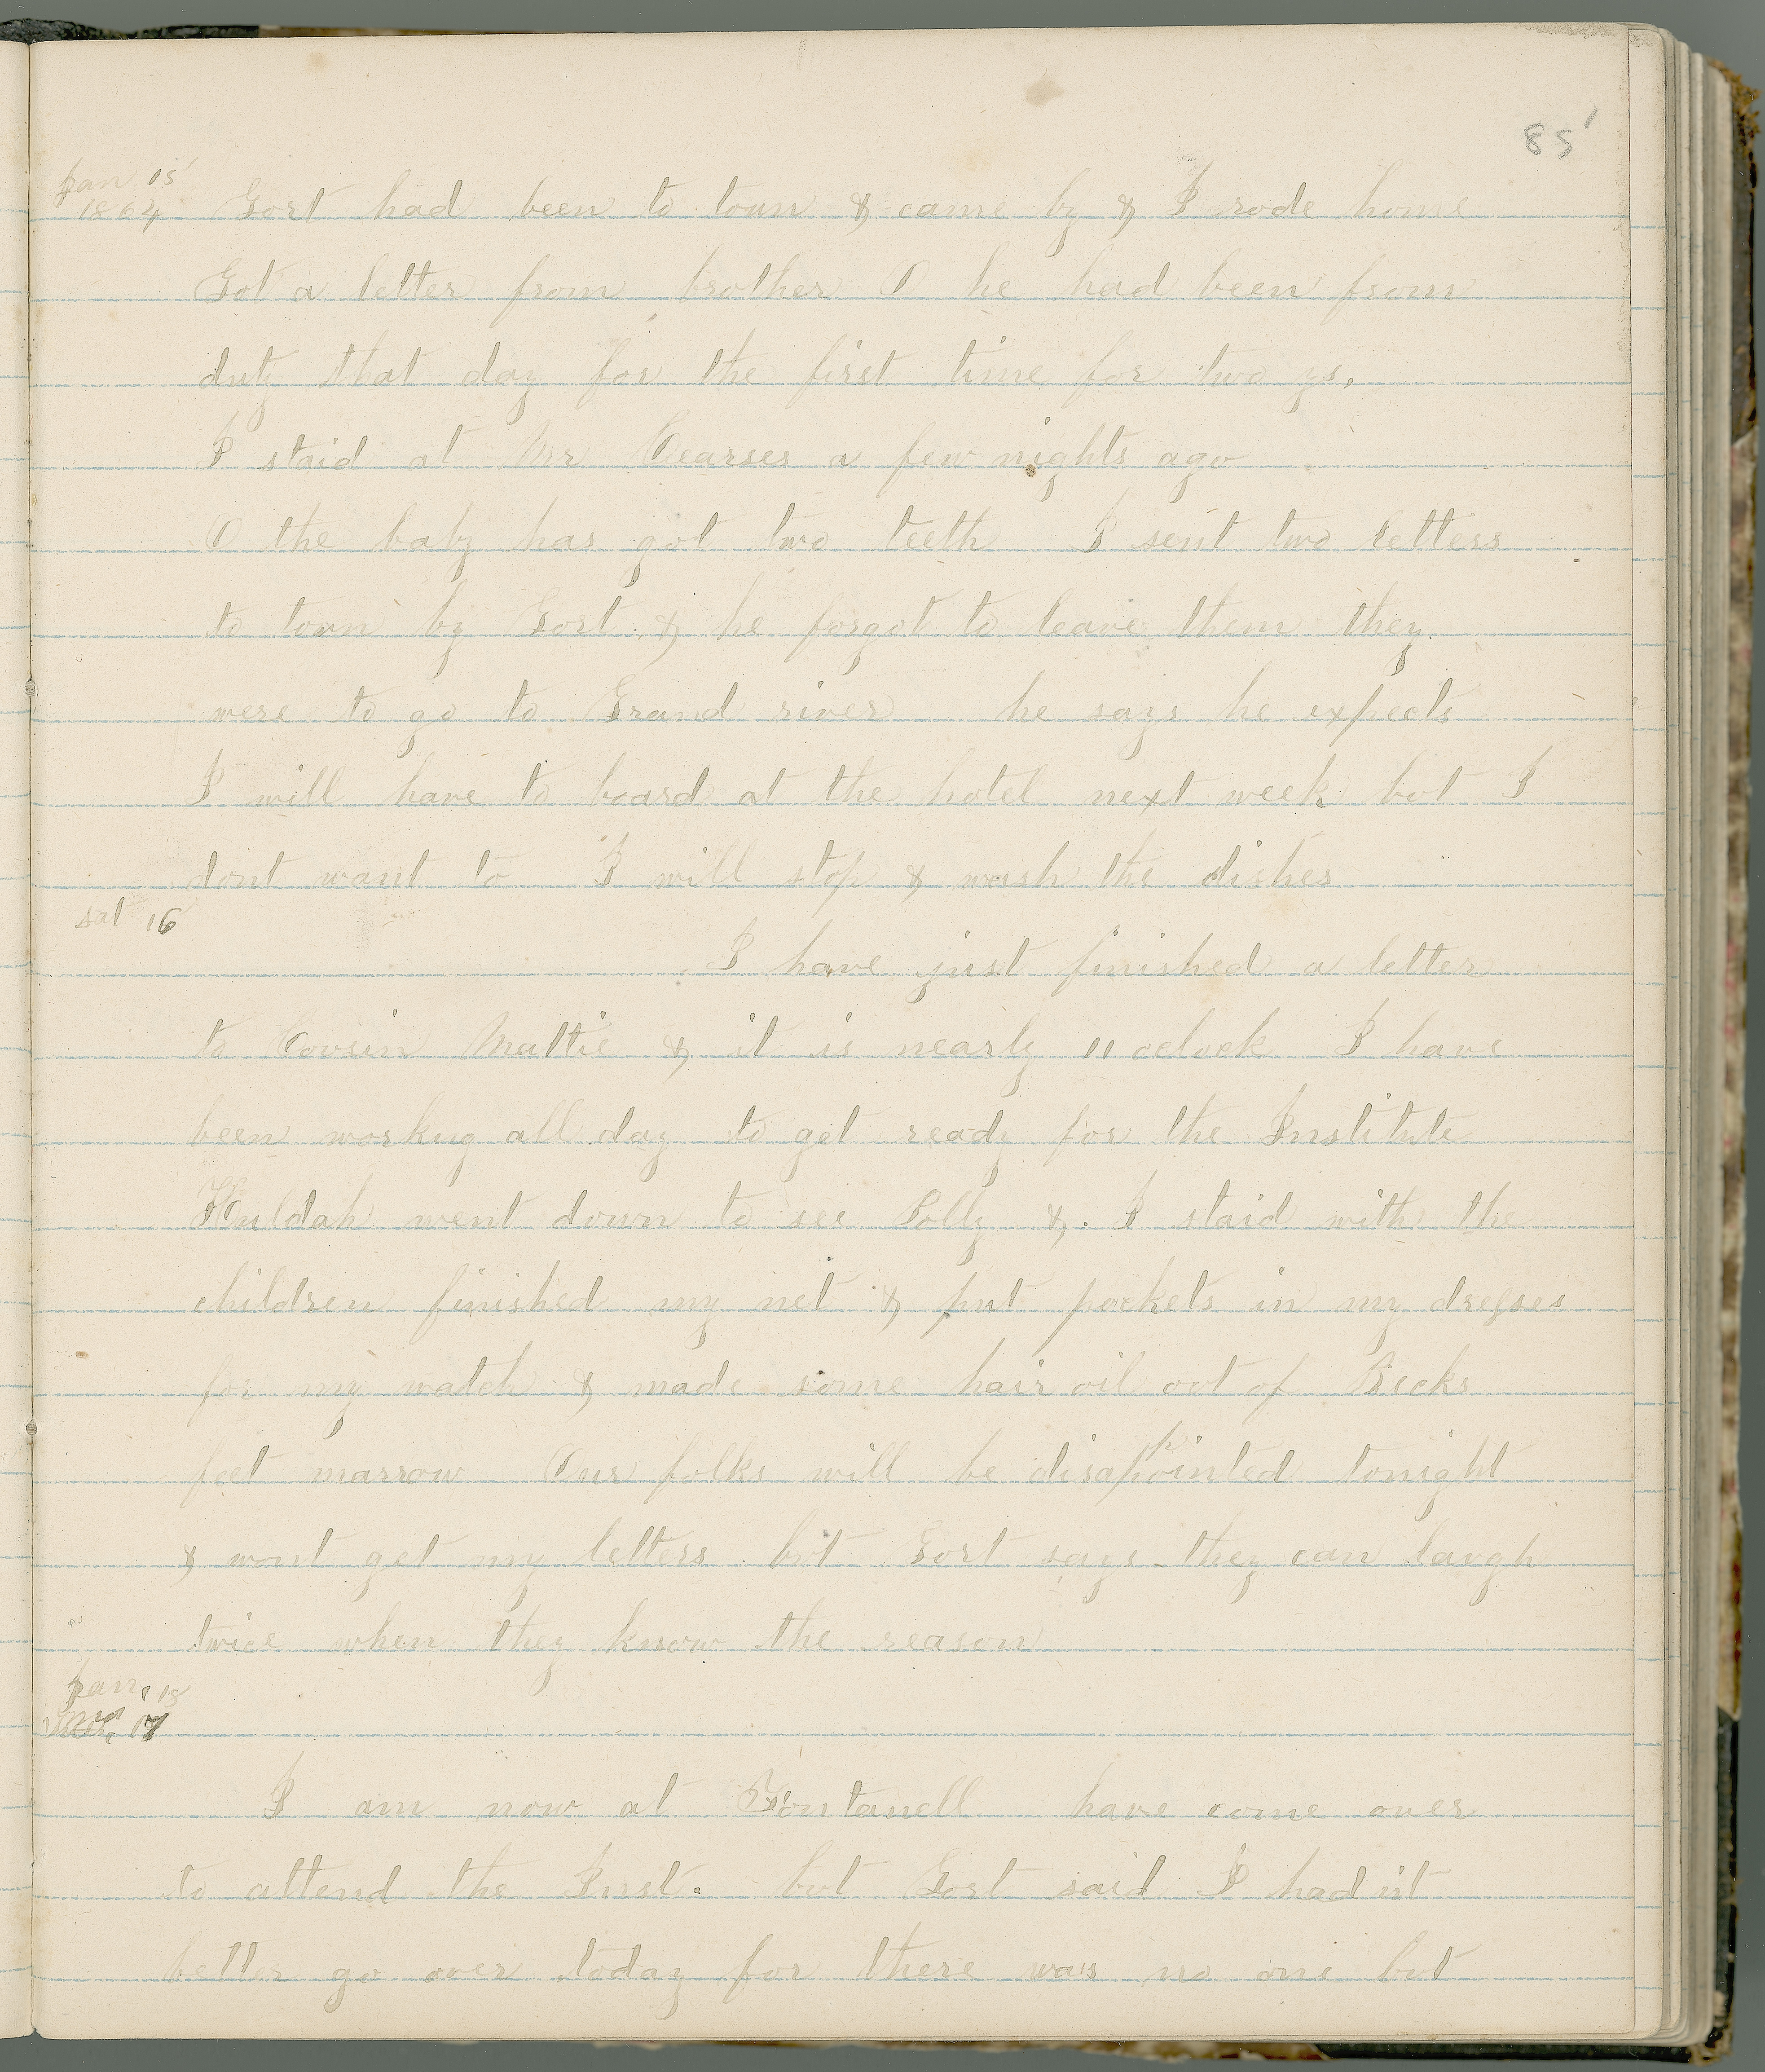 85
Jan 15
1864
Gort had been to town & came by & I rode home
Got a letter from brother O he had been from
duty that day for the first time for two ys,
I staid at Mr Cearses a few nights ago
O the baby has got two teeth I sent two letters
to town by Gort & he forgot to leave them they
were to go to Grand river he says he expects
I will have to board at the hotel next week but I
dont want to I will stop & wash the dishes
sat 16
I have just finished a letter
to Cousin Mattie & it is nearly 11 oclock I have
been workng all day to get ready for the Institute
Huldah went down to see Polly &. I staid with the
children finished my net & put pockets in my dresses
for my watch & made some hair oil out of Becks
feet marrow Our folks will be disappointed tonight
& wont get my letters but Gort says they can laugh
twice when they know the reason
Jan, 18
I am now at Fontanell have come over
to attend the Inst. but Gort said I had nt
better go over today for there was no one but